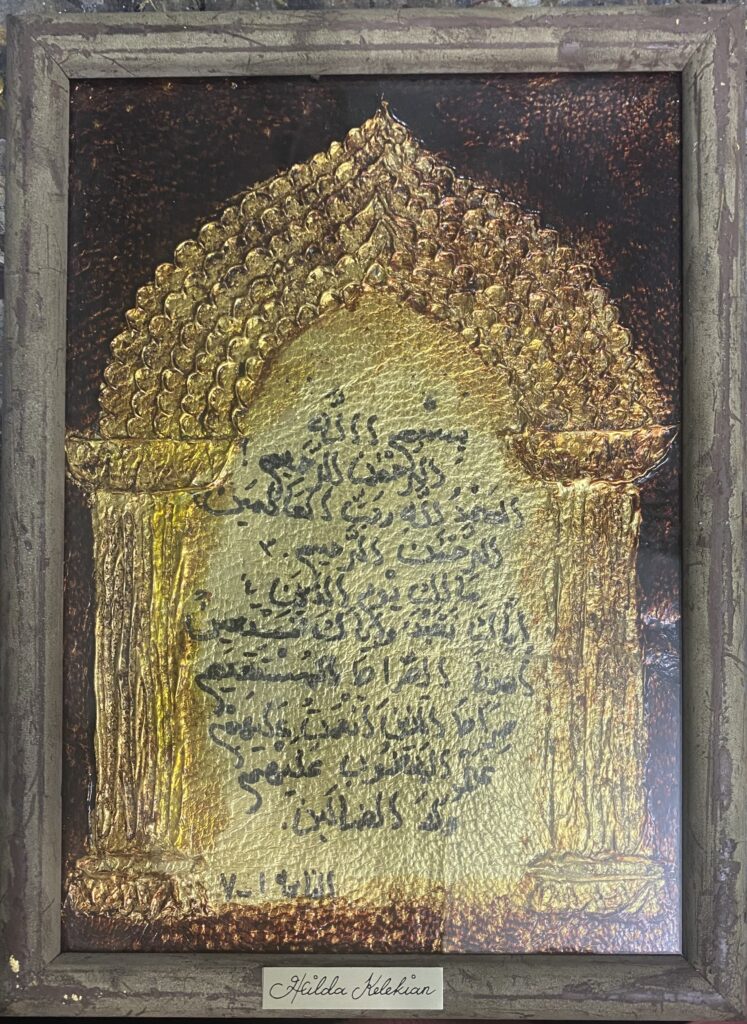 بِسْمِ اللَّهِ
الرَّحْمٰنِ الرَّحِيمِ ١
الحَمْدُ للّه رَبِّ العَالَمِينَ
الرَّحْمٰنِ الرَّحِيمِ ٣٠
مَالِكِ يَوْمِ الدِّينِ ٤
إِيَّاكَ نَعْبُدُ وَإِيَّاكَ نَسْتَعِينُ
إهدنَا الصِّرَاطَ المُسْتَقِيمَ
صِرَاطَ الَّذِينَ أَنْعَمْتَ عَلَيْهِمْ
غير المَغْضُوبِ عَليهِم
وَلَا الضالِّينَ.
الفاتحة ١-٧
Hilda Kelekian